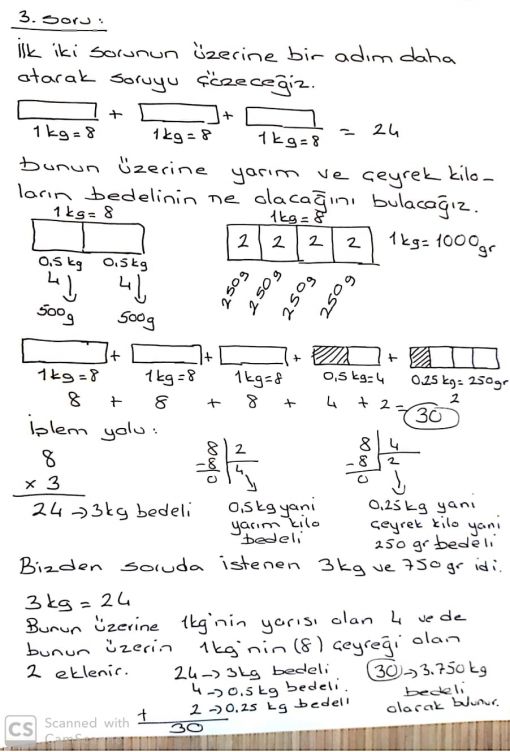 3. Soru :
İlk iki sorunun üzerine bir adım daha
atarak soruyu çözeceğiz.
+ + = 24
1kg=8 1kg=8 1kg=8
bunun üzerine yarım ve çeyrek kilo-
ların bedelinin ne olacağını bulacağız.
1kg=8 1kg=8
2 2 2 2 1kg=1000gr
0,5kg 0,5kg
4↓ 4↓
250g 250g 250g 250g
500g 500g
+ + + +
1kg=8 1kg=8 1kg=8 0,5kg=4 0,25kg=250gr
2
8 + 8 + 8 + 4 + 2 = 30
İşlem yolu :
8 8 2 8 4
x 3 -8 4 -8 2
0 0
24 → 3kg bedeli
0,5kg yani
yarım kilo
bedeli
0,25kg yani
çeyrek kilo yani
250 gr bedeli
Bizden soruda istenen 3kg ve 750 gr idi.
3kg = 24
Bunun üzerine 1kg'nin yarısı olan 4 ve de
bunun üzerin 1kg'nin (8) çeyreği olan
2 eklenir.
24 → 3kg bedeli
4 → 0,5kg bedeli.
+ 2 → 0,25 kg bedeli
30
30 → 3.750kg
bedeli
olarak bulunur.
CS Scanned with
CamScanner